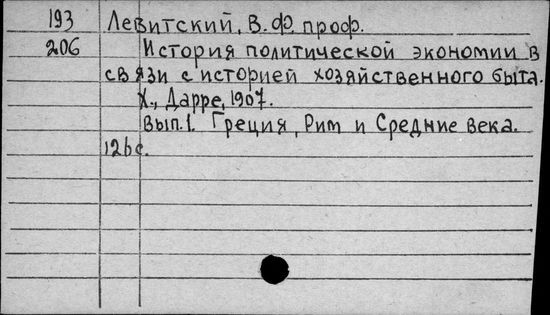 193 Левитский, В. Ф. проф.
206 История политической экономии в
связи с историей хозяйственного быта.
Х., Дарре, 1907.
Вып. 1. Греция, Рим и Средние века.
126 с.